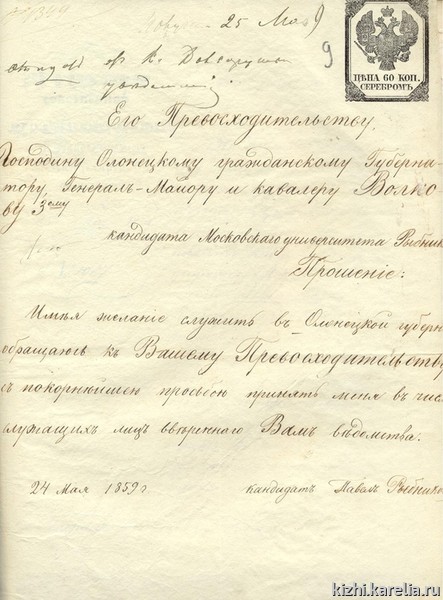 25 Мая
9
ЦѢНА 60 КОП.
СЕРЕБРОМЪ
Его Превосходительству,
Господину Олонецкому гражданскому Губерна-
тору, Генералъ-Майору и кавалеру Волко-
ву 3ему
кандидата Московскаго университета Рыбник
Прошеніе:
Имѣя желаніе служить въ Олонецкой губерн
обращаюсь къ Вашему Превосходительству
съ покорнѣйшею просьбою принять меня въ чис
служащихъ лицъ ввѣреннаго Вамъ вѣдомства.
24 Мая 1859 г. кандидатъ Павелъ Рыбнико
kizhi.karelia.ru